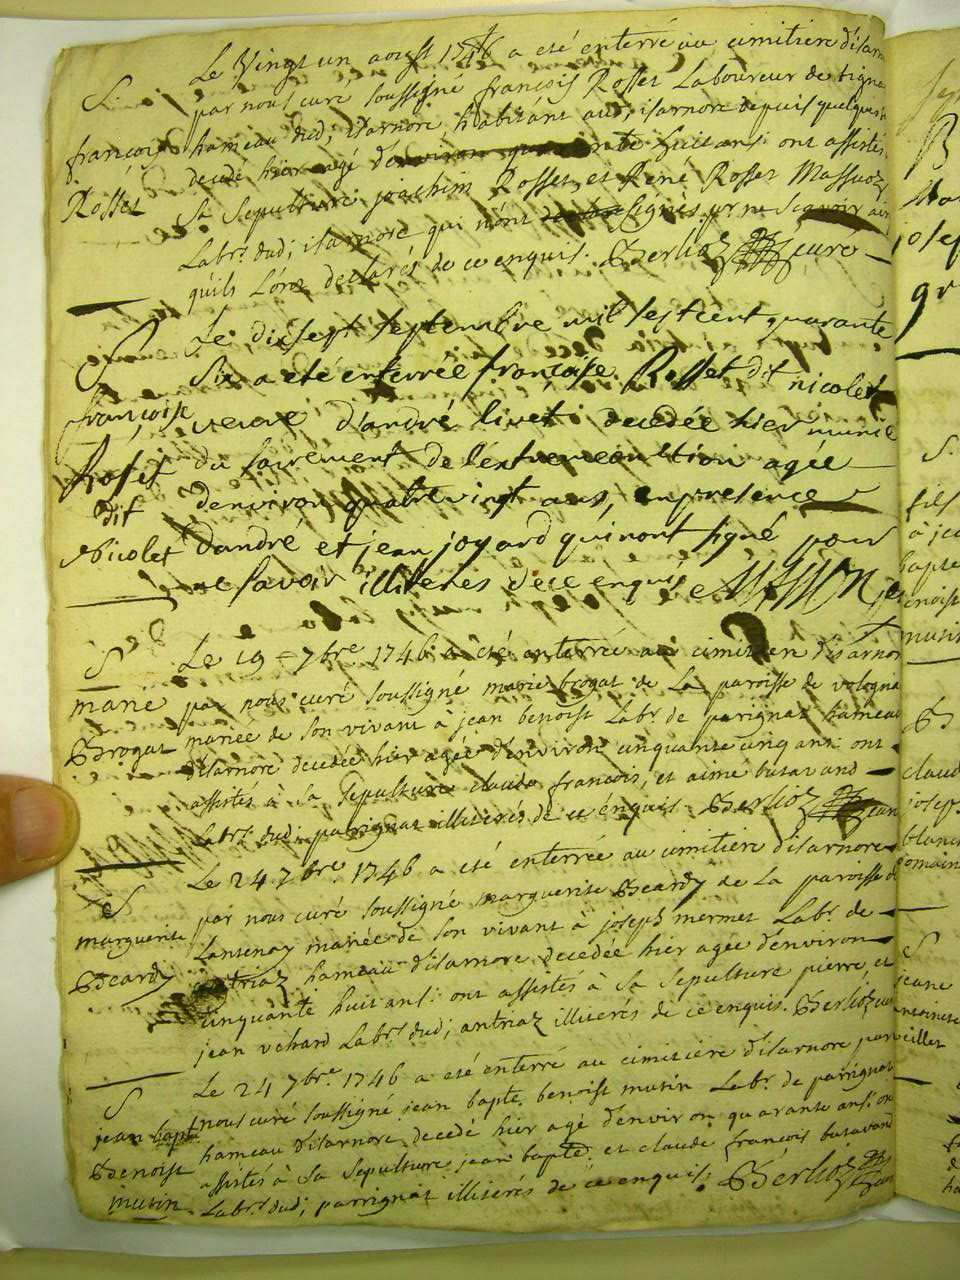 Le Vingt un aoust 1746 a eté enterré au cimitiere d'isarn
S.
par nous curé soussigné françois Rosset Laboureur de tigna
françois hameau dud; isarnore, habitant aud; isarnore depuis quelques
decedé hier agé d'environ quarante huit ans: ont assistés
Rosset Sa Sepulture joachim Rosset, et René Rosset Massuoz
Labrs. dud; isarnore qui n'ont signés pr ne Sçavoir ain
quils L'ont declarés de ce enquis. Berlioz curé
S Le dixsept septembre mil sept cent quarante
Six a eté enterrée françoise Rosset dit nicolet
françoise veuve d'andré livet decedée hier munie
Rosset du sacrement de l'extreme onction agée
dit d'environ quatre vingt ans, en presence
Nicolet d'andré et jean joyard qui n'ont signé pour
ne savoir illiterés de ce enquis
S Le 19 7bre 1746 a été enterrée au cimitiere d'isarnor
marie par nous curé soussigné marie brogat de La paroisse de vologna
Brogat mariée de son vivant à jean benoist Labr. de parignat hameau
d'isarnore decedée hier agée d'environ cinquante cinq ans: ont
assistés à Sa Sepulture claude françois, et aimé butavand
Labrs. dud; parrignat illiterés de ce enquis. Berlioz curé
S Le 24 7bre 1746 a eté enterrée au cimitiere d'isarnore
marguerite par nous curé soussigné marguerite Beardy de La paroisse de
Beardy Lantenay mariée de son vivant à joseph mermet Labr. de
antriaz hameau d'isarnore decedée hier agée d'environ
cinquante huit ans: ont assistés à Sa Sepulture pierre, et
jean vchard Labrs. dud; antriaz illiterés de ce enquis. Berlioz curé
S Le 24 7bre 1746 a eté enterré au cimitiere d'isarnore par
jean bapt nous curé soussigné jean bapte. benoist mutin Labr. de parrignat
Benoist hameau d'isarnore decedé hier agé d'environ quarante ans: on
assistés à Sa Sepulture jean bapte. et claude françois butavand
mutin Labrs. dud; parrignat illiterés de ce enquis. Berlioz curé